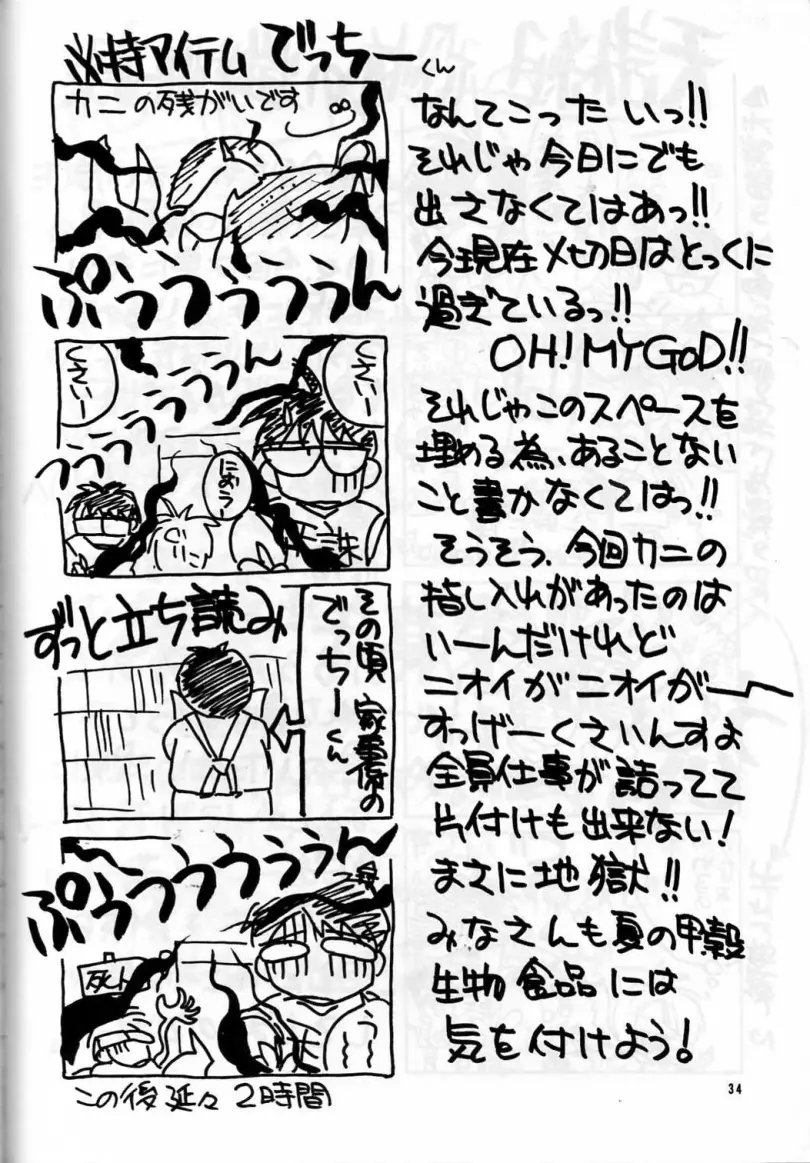 必特アイテム でっちーくん
カニの残がいです
ぷぅぅぅぅぅん
くさいー
くさいー
におうー
誅
その頃 家事係の
でっちーくん
ずっと立ち読み
ぷぅぅぅぅぅぅん
う
この後延々 2時間
なんてこった いっ!!
それじゃ今日にでも
出さなくてはあっ!!
今現在〆切日はとっくに
過ぎているっ!!
OH! MY GOD!!
それじゃこのスペースを
埋める為、あることない
こと書かなくてはっ!!
そうそう、今回カニの
指し入れがあったのは
いーんだけれど
ニオイがニオイがー
すっげーくさいんすよ
全員仕事が詰ってて
片付けも出来ない!
まさに地獄!!
みなさんも夏の甲殻
生物食品には
気を付けよう!
34